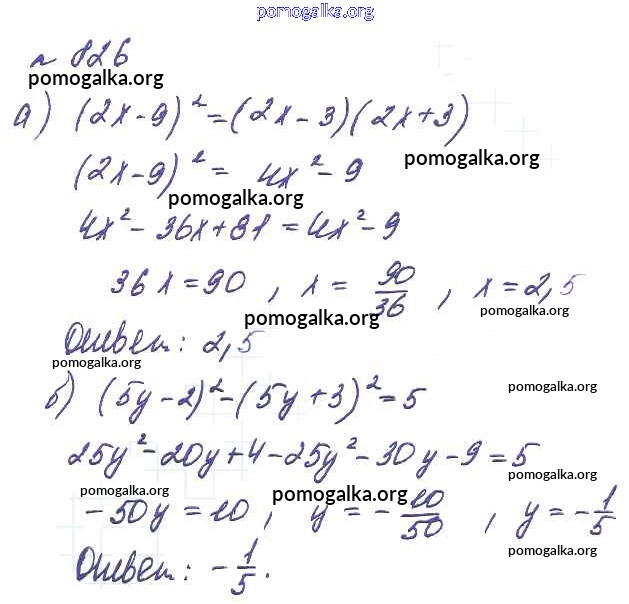 pomogalka.org
№ 826
pomogalka.org
а) (2x-9)²=(2x-3)(2x+3)
pomogalka.org
(2x-9)²= 4x²-9
pomogalka.org
4x²-36x+81=4x²-9
36x=90, x= 90/36, x=2,5
pomogalka.org
pomogalka.org
Ответ: 2,5
pomogalka.org
pomogalka.org
б) (5y-2)²-(5y+3)²=5
25y²-20y+4-25y²-30y-9=5
pomogalka.org
pomogalka.org
pomogalka.org
-50y=10, y=-10/50, y=-1/5
pomogalka.org
Ответ: -1/5.